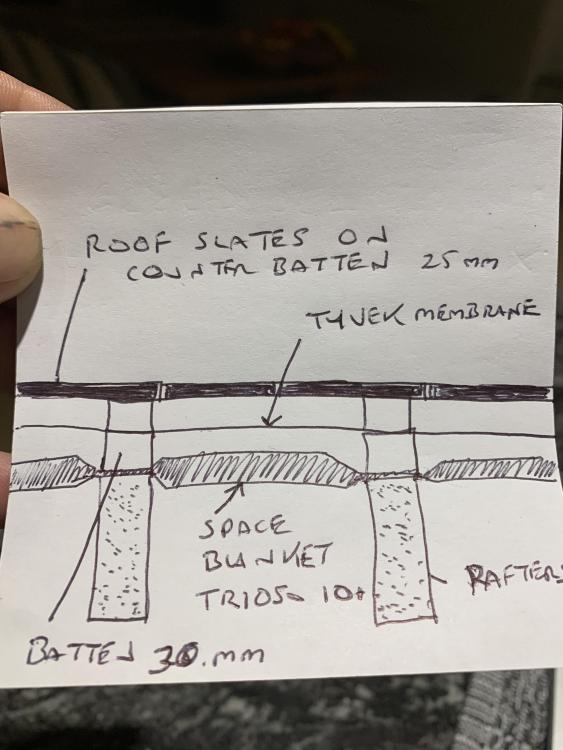 ROOF SLATES ON
COUNTER BATTEN 25mm
TYVEK MEMBRANE
SPACE
BLANKET
TRISO 10+
RAFTERS
BATTEN 30.mm